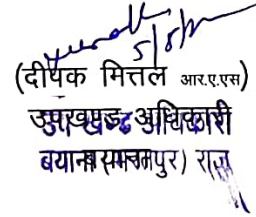 5/8/
(दीपक मित्तल आर.ए.एस)
उपखण्ड अधिकारी
बयाना (भरतपुर) राज